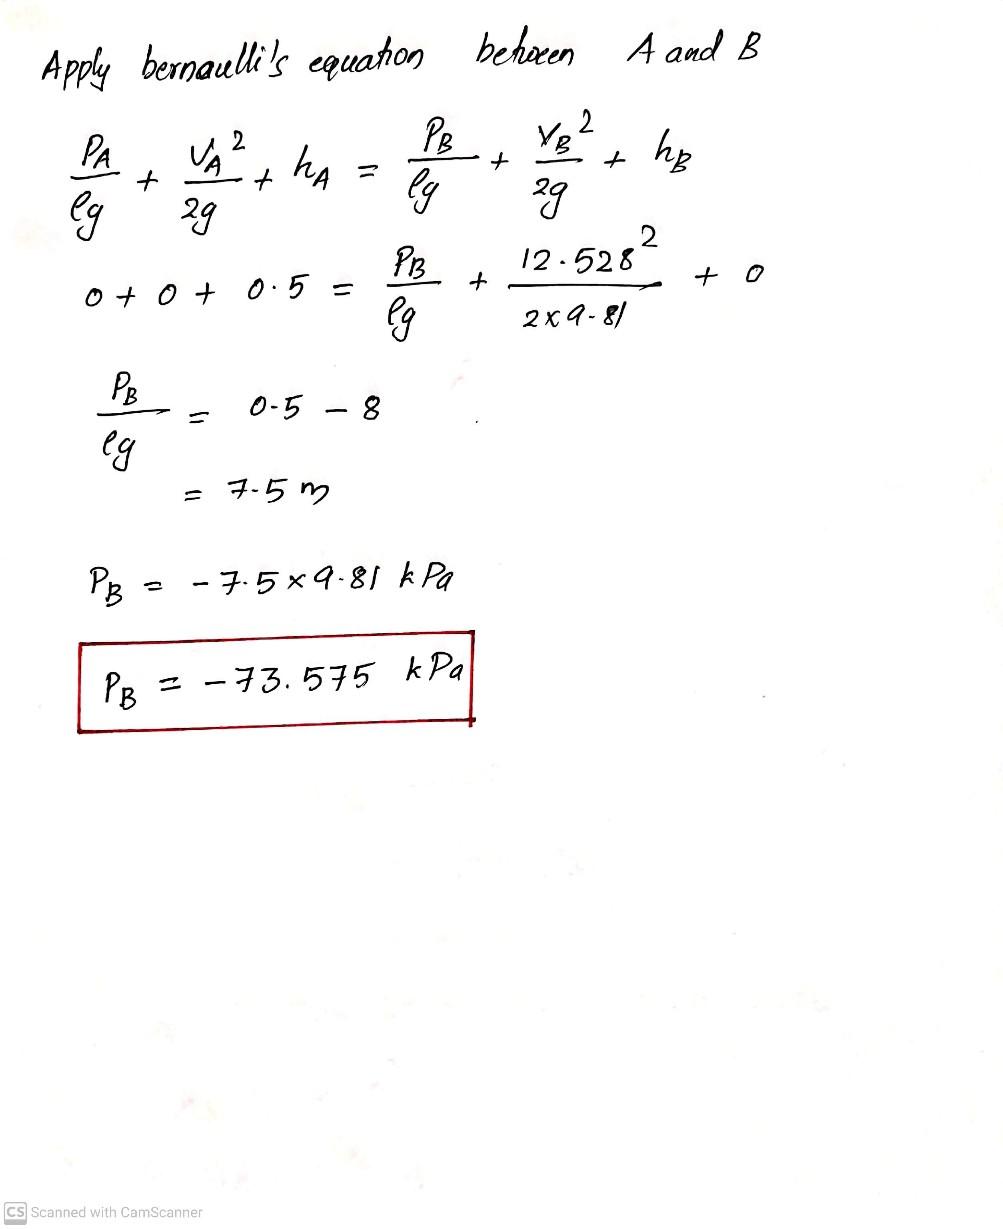 Apply bernaulli's equation between A and B
PA/ρg + VA²/2g + hA = PB/ρg + VB²/2g + hB
0 + 0 + 0.5 = PB/ρg + 12.528²/2×9.81 + 0
PB/ρg = 0.5 - 8
= 7.5 m
PB = -7.5 × 9.81 kPa
PB = -73.575 kPa
CS Scanned with CamScanner